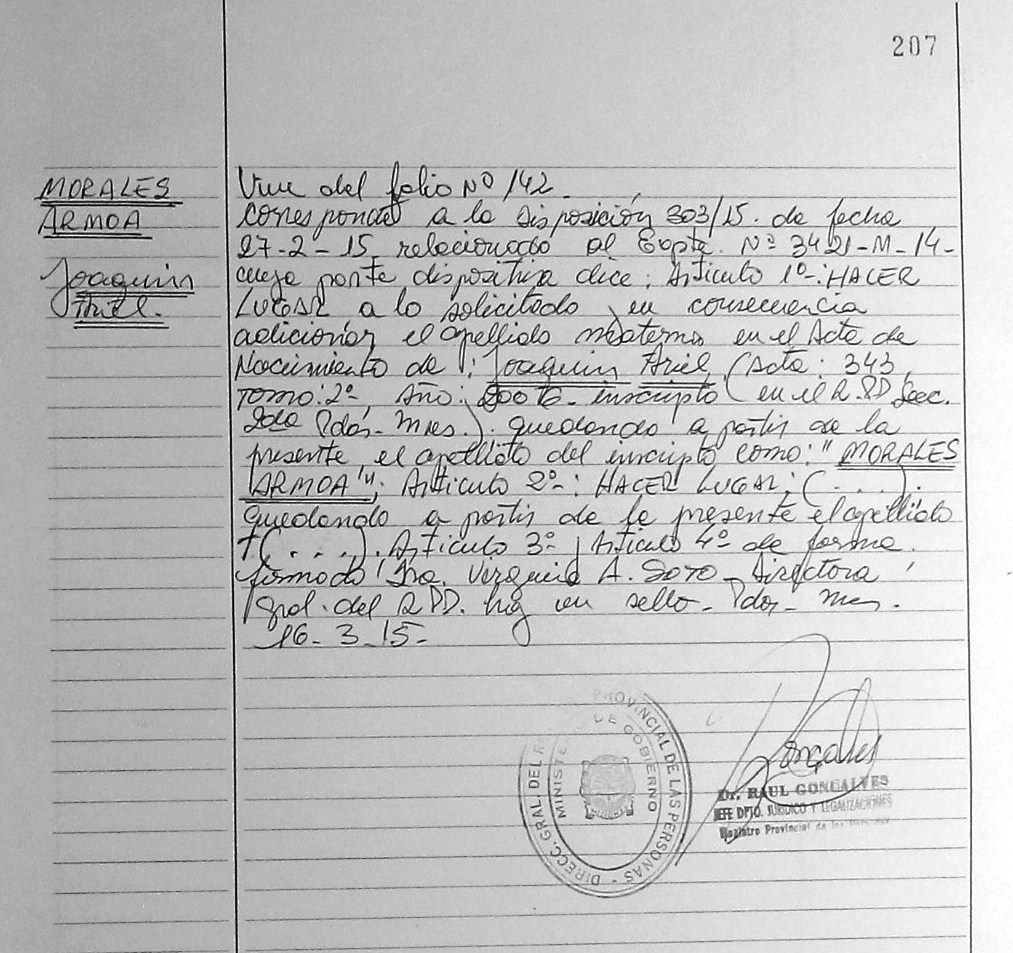 207
MORALES
ARMOA
Joaquin
Ariel.
Viene del folio Nº 142
corresponde a la Disposición 303/15. de fecha
27-2-15 relacionado al Expte. Nº 3421-M-14-
cuya parte dispositiva dice: Articulo 1º-: HACER
LUGAR a lo solicitado en consecuencia
adicionar el apellido materno en el Acta de
Nacimiento de: Joaquin Ariel (Acta: 343
Tomo: 2º, Año: inscripto en el R.PP Secc.
2da Pdas- Mnes.) quedando a partir de la
presente, el apellido del inscripto como: "MORALES
ARMOA"; Articulo 2º-: HACER LUGAR; (....).
Quedando a partir de la presente el apellido
(....). Articulo 3º, Articulo 4º de forma.
firmado Dra. Virginia A. Soto Directora
Gral. del R PP. hay un sello- Pdas- Mnes.
16-3-15-
DIRECC. GRAL. DEL PROVINCIAL DE LAS PERSONAS
MINISTE DE GOBIERNO
Dr. RAUL GONCALVES
JEFE DPTO. JURIDICO Y LEGALIZACIONES
Registro Provincial de las